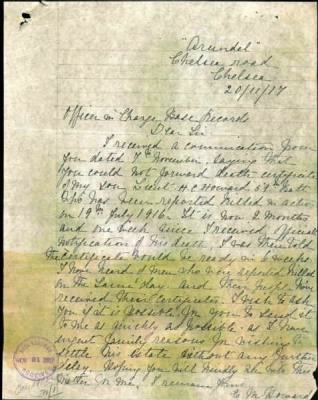 "Arundel"
Chelsea road
Chelsea
20/11/17
Officer in Charge Base Records
Dear Sir
I received a comunication from
you dated 7th November, saying that
you could not forward death certificate
of my son Lieut H.C. Howard 57th Batt
who has been reported killed in action
on 19th July 1916. It is now 2 months
and one week since I received Official
notification of his death, I was then told
the certificate would be ready in 6 weeps.
I have heard of men who were reported killed
on the same day. and their people have
received their certificates. I wish to ask
you if it is possible for you to send it
to me as quickly as possible. as I have
urgent family reasons for wishing to
settle his Estate without any further
delay. Hoping you will kindly see into this
matter for me, I remain yours
Howard